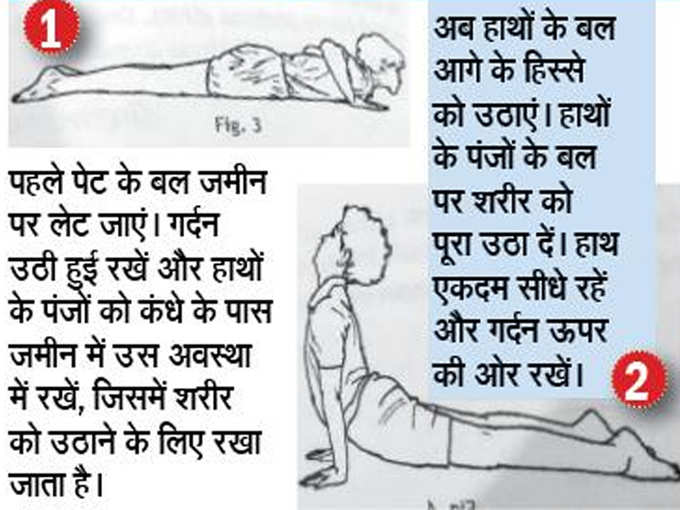 1
Fig. 3
पहले पेट के बल जमीन
पर लेट जाएं। गर्दन
उठी हुई रखें और हाथों
के पंजों को कंधे के पास
जमीन में उस अवस्था
में रखें, जिसमें शरीर
को उठाने के लिए रखा
जाता है।
अब हाथों के बल
आगे के हिस्से
को उठाएं। हाथों
के पंजों के बल
पर शरीर को
पूरा उठा दें। हाथ
एकदम सीधे रहें
और गर्दन ऊपर
की ओर रखें।
2